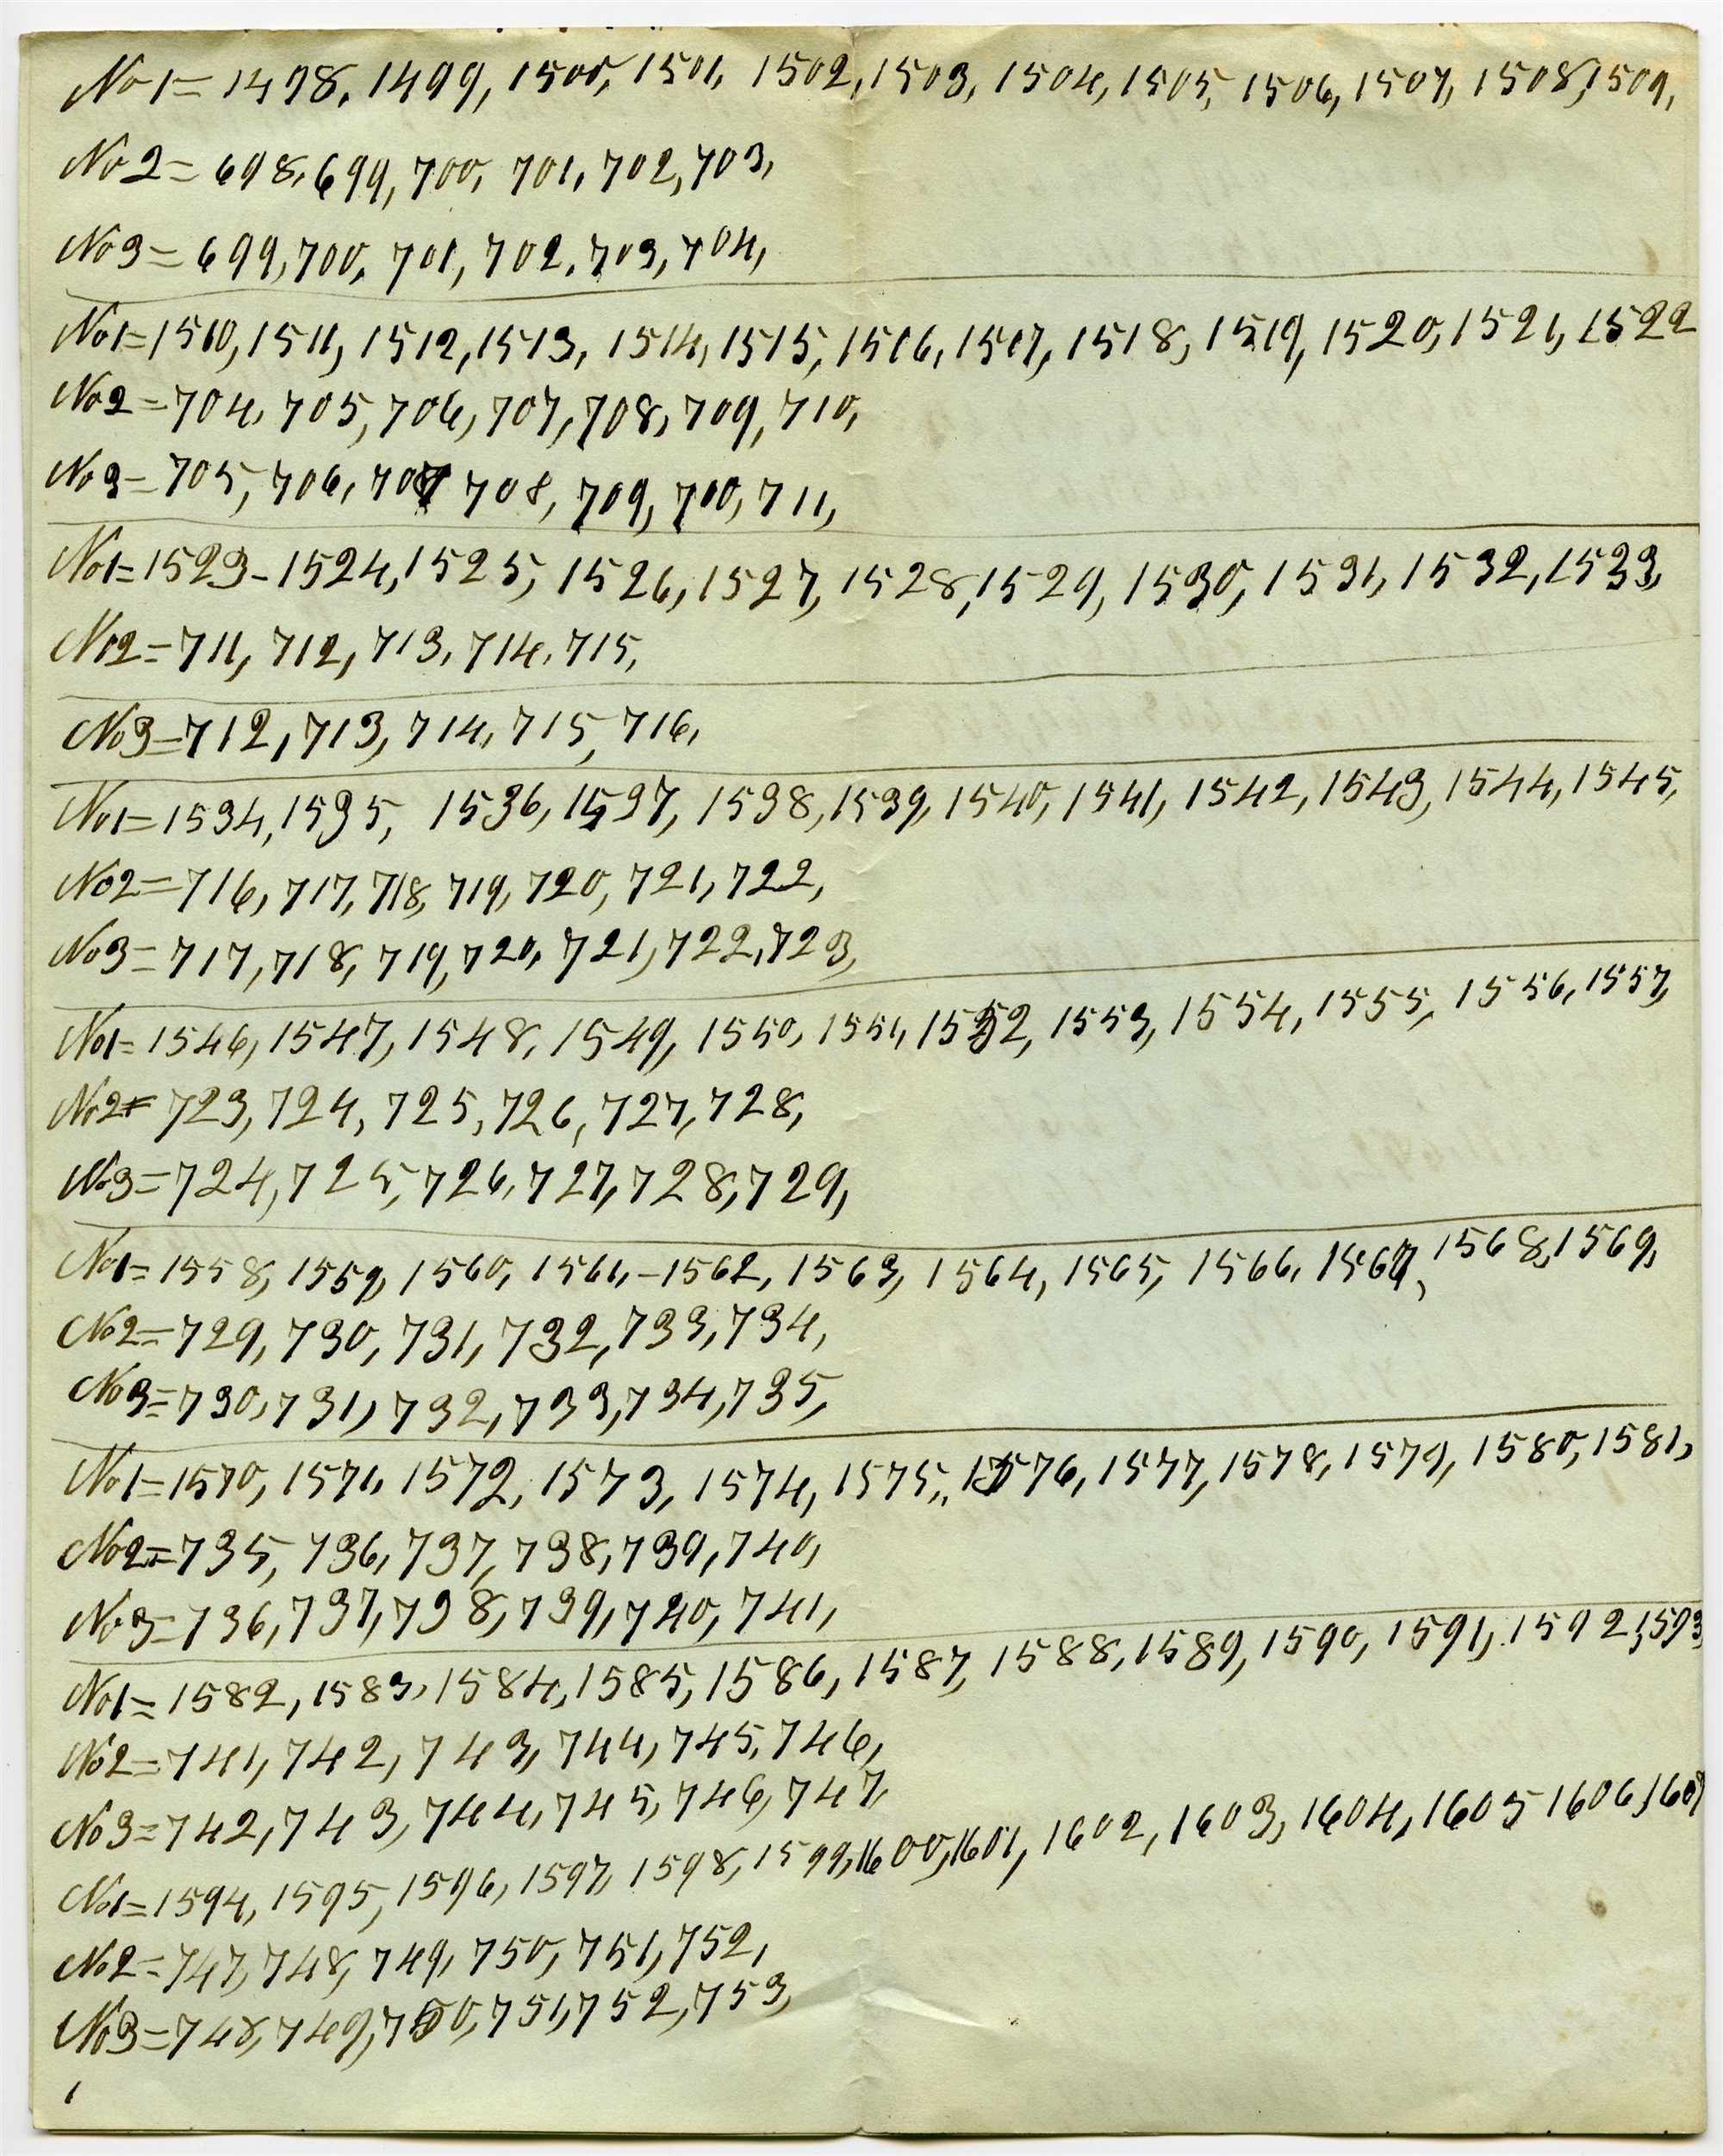 No 1 = 1498, 1499, 1500, 1501, 1502, 1503, 1504, 1505, 1506, 1507, 1508, 1509,
No 2 = 698, 699, 700, 701, 702, 703,
No 3 = 699, 700, 701, 702, 703, 704,
No 1 = 1510, 1511, 1512, 1513, 1514, 1515, 1516, 1517, 1518, 1519, 1520, 1521, 1522
No 2 = 704, 705, 706, 707, 708, 709, 710,
No 3 = 705, 706, 707 708, 709, 700, 711,
No 1 = 1523 - 1524, 1525, 1526, 1527, 1528, 1529, 1530, 1531, 1532, 1533,
No 2 = 711, 712, 713, 714, 715,
No 3 = 712, 713, 714, 715, 716,
No 1 = 1534, 1535, 1536, 1537, 1538, 1539, 1540, 1541, 1542, 1543, 1544, 1545,
No 2 = 716, 717, 718, 719, 720, 721, 722,
No 3 = 717, 718, 719, 720, 721, 722, 723,
No 1 = 1546, 1547, 1548, 1549, 1550, 1551, 1552, 1553, 1554, 1555, 1556, 1557,
No 2 = 723, 724, 725, 726, 727, 728,
No 3 = 724, 725, 726, 727, 728, 729,
No 1 = 1558, 1559, 1560, 1561, - 1562, 1563, 1564, 1565, 1566, 1567, 1568, 1569,
No 2 = 729, 730, 731, 732, 733, 734,
No 3 = 730, 731, 732, 733, 734, 735,
No 1 = 1570, 1571, 1572, 1573, 1574, 1575,, 1576, 1577, 1578, 1579, 1580, 1581,
No 2 = 735, 736, 737, 738, 739, 740,
No 3 = 736, 737, 738, 739, 740, 741,
No 1 = 1582, 1583, 1584, 1585, 1586, 1587, 1588, 1589, 1590, 1591, 1592, 1593
No 2 = 741, 742, 743, 744, 745, 746,
No 3 = 742, 743, 744, 745, 746, 747,
No 1 = 1594, 1595, 1596, 1597, 1598, 1599, 1600, 1601, 1602, 1603, 1604, 1605 1606, 1607
No 2 = 747, 748, 749, 750, 751, 752,
No 3 = 748, 749, 750, 751, 752, 753,